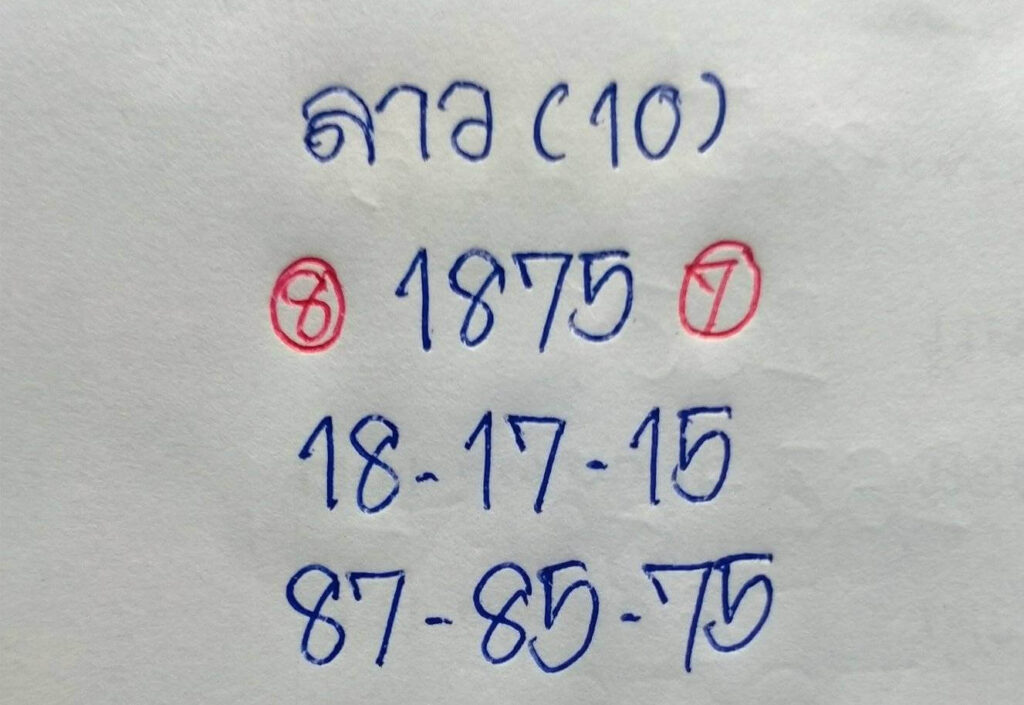 ลาว (10)
8 1875 7
18-17-15
87-85-75